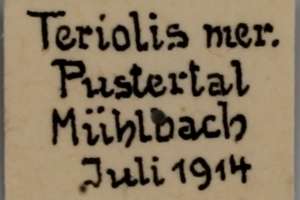 Teriolis mer.
Pustertal
Mühlbach
Juli 1914